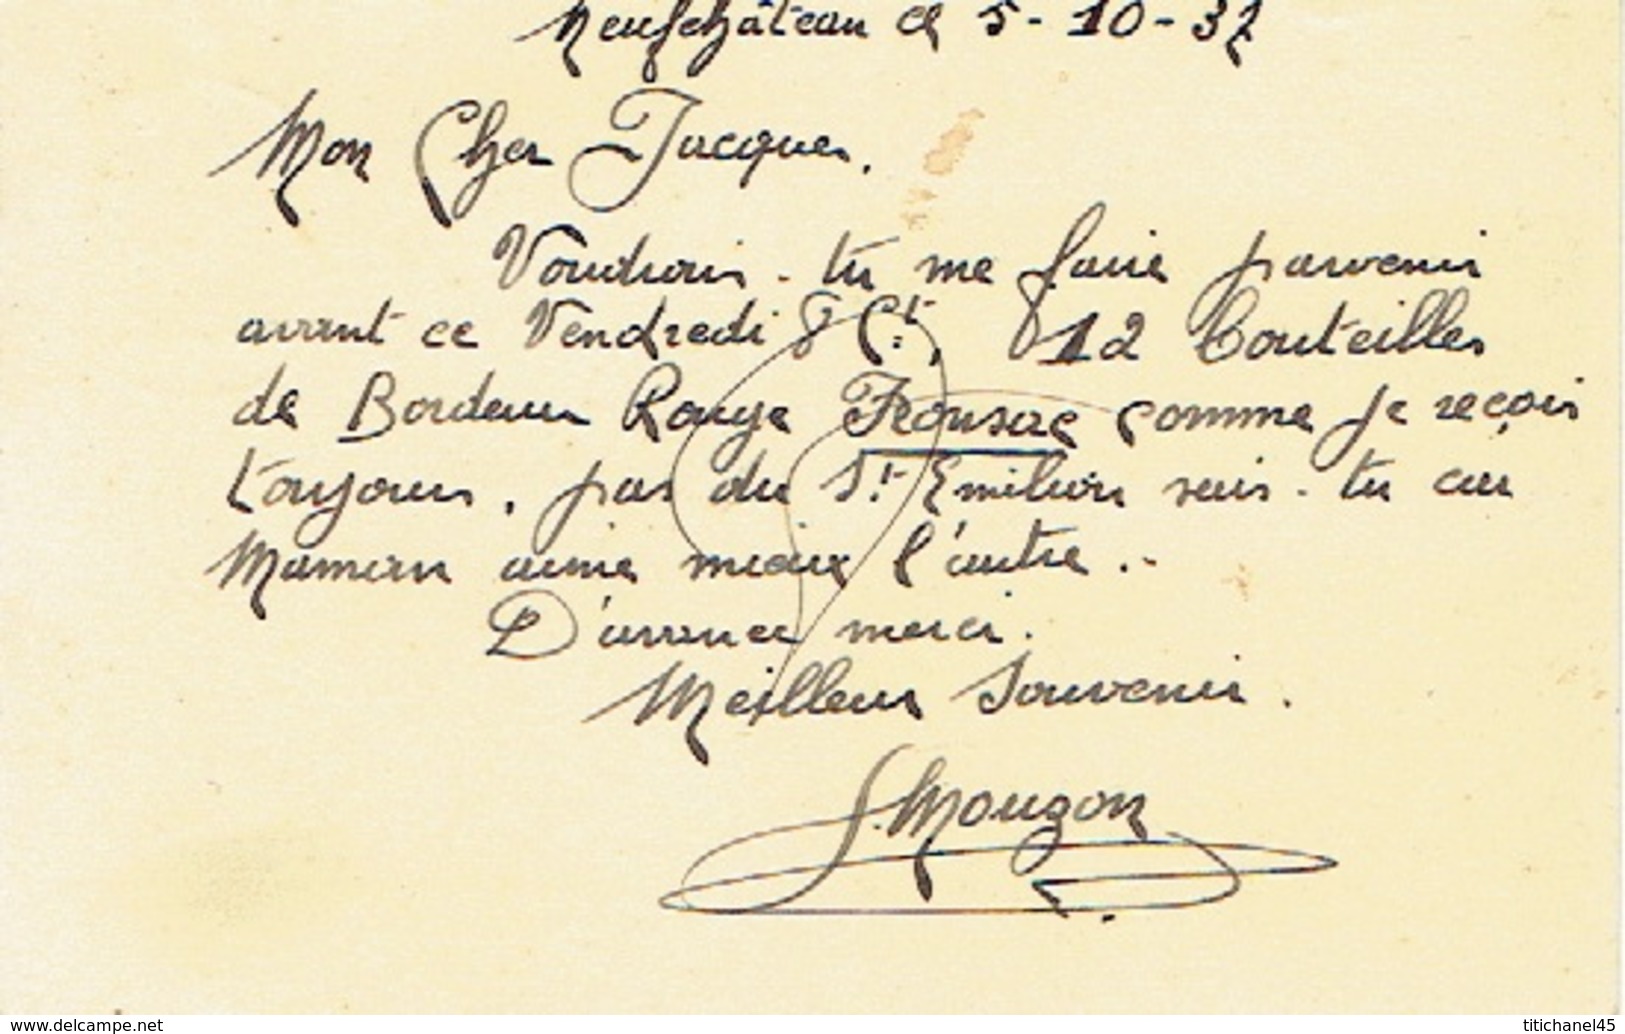 Neufchâteau ce 5-10-37
Mon Cher Jacques,
Voudrais-tu me faire parvenir
avant ce Vendredi 8 Ct., 12 bouteilles
de Bordeaux Rouge Fronsac comme je reçois
toujours, pas du St Emilion vois-tu car
Maman aime mieux l'autre..
D'avance merci.
Meilleur Souvenir.
S. Mouzon
www.delcampe.net
titichanel45